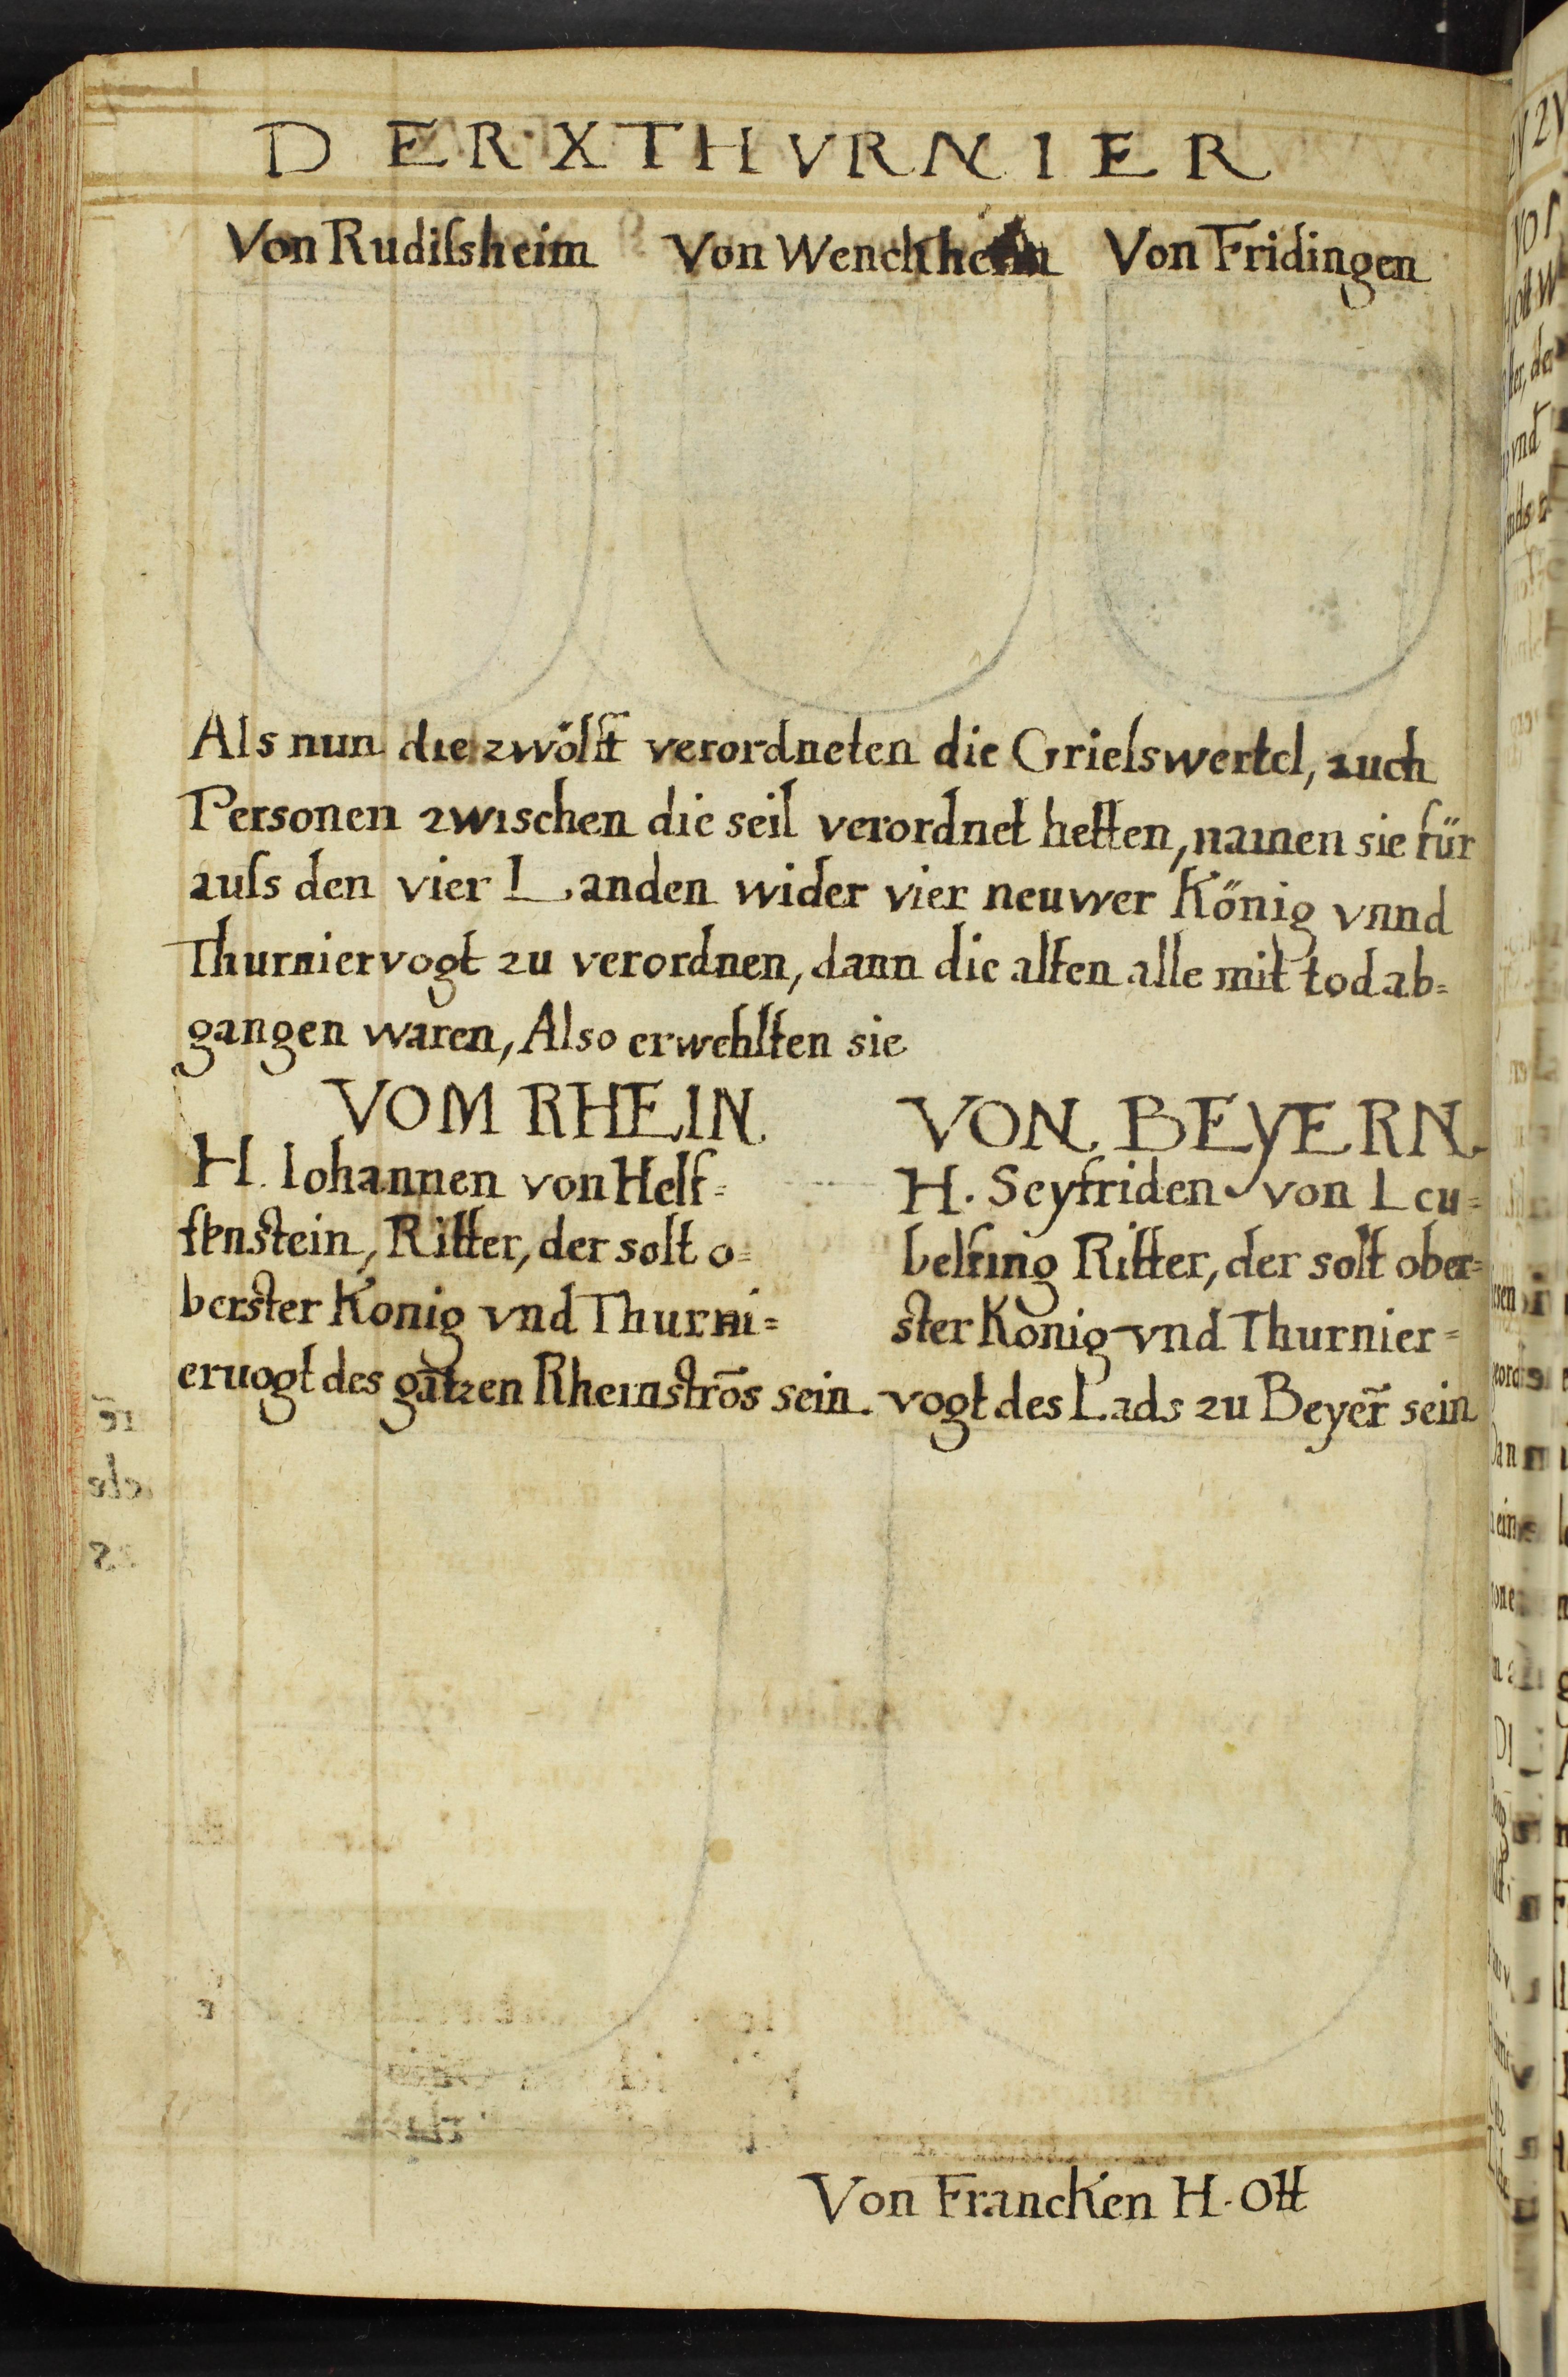 DER·X THVRNIER
Von Rudiſsheim Von Wenckheim Von Fridingen
Als nun die zwölff verordneten die Grielswertel, auch
Personen zwischen die seil verordnet hetten, namen sie für
auſs den vier Landen wider vier neuwer König vnnd
Thurniervogt zu verordnen, dann die alten alle mit tod ab=
gangen waren, Also erwehlten sie
VOM RHEIN
H. Iohannen von Helf=
fenstein, Ritter, der solt o=
berster Konig vnd Thurni=
eruogt des gātzen Rheinstrōs sein.
VON BEYERN
H. Seyfriden von Leu=
belfing Ritter, der solt ober=
ster Konig vnd Thurnier=
vogt des Lāds zu Beyer̄ sein
Von Francken H. Ott